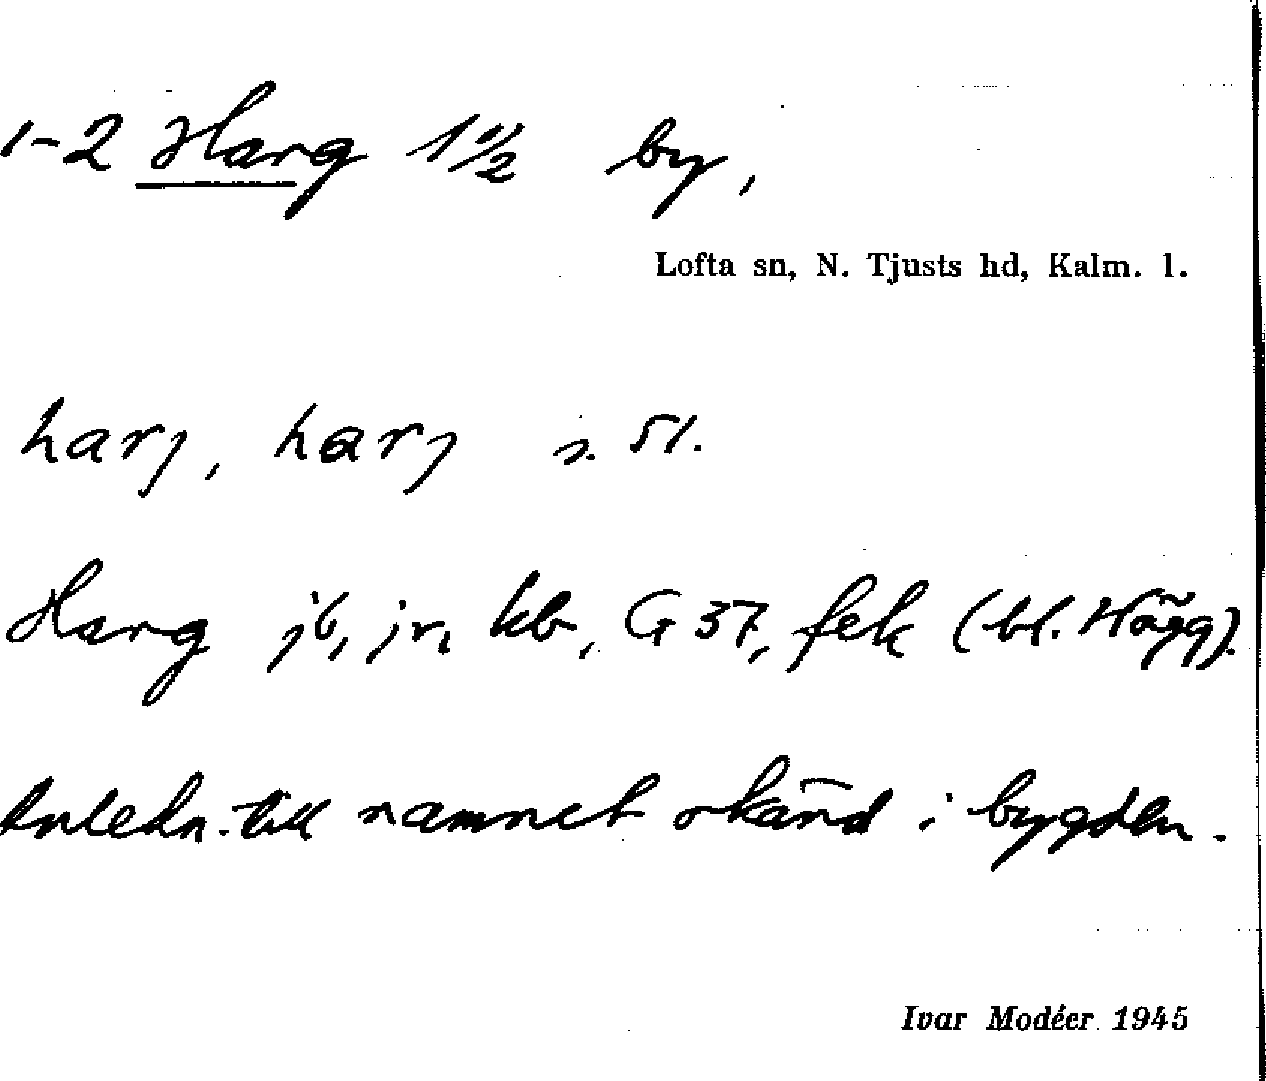 1-2 Harg 1 1/2 by,
Lofta sn, N. Tjusts hd, Kalm. l.
harj, harj s. 51.
Harg jb, jr, kb, G 37, fek (bl. Hägg).
Anledn. till namnet okänd i bygden.
Ivar Modéer 1945